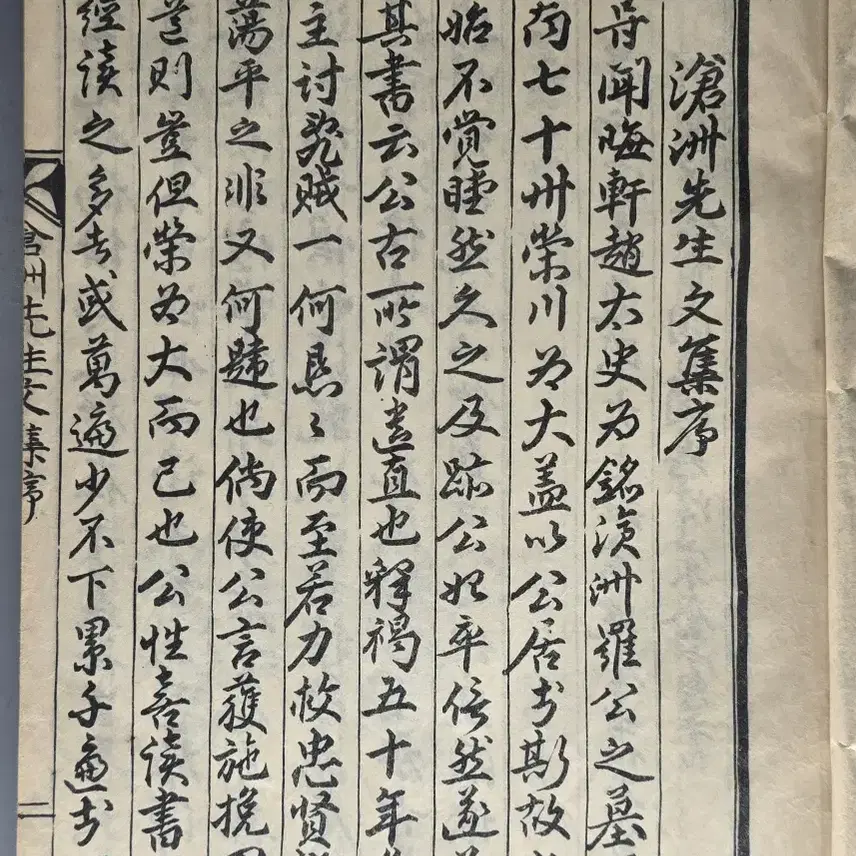 滄洲先生文集序
聞晦軒趙太史为銘滄洲羅公之墓
南七十州榮川为大盖以公居于斯故
始不覚瞠然久之及跡公始卒信然遂
其書云公古所謂遺直也釋褐五十年
主討賊一何懇〻而至若力救忠賢
蕩平之非又何韙也倘使公言獲施挽
則豈但榮为大而已也公性喜读書
經读之多者或萬遍少不下累千遍於
滄洲先生文集序
二